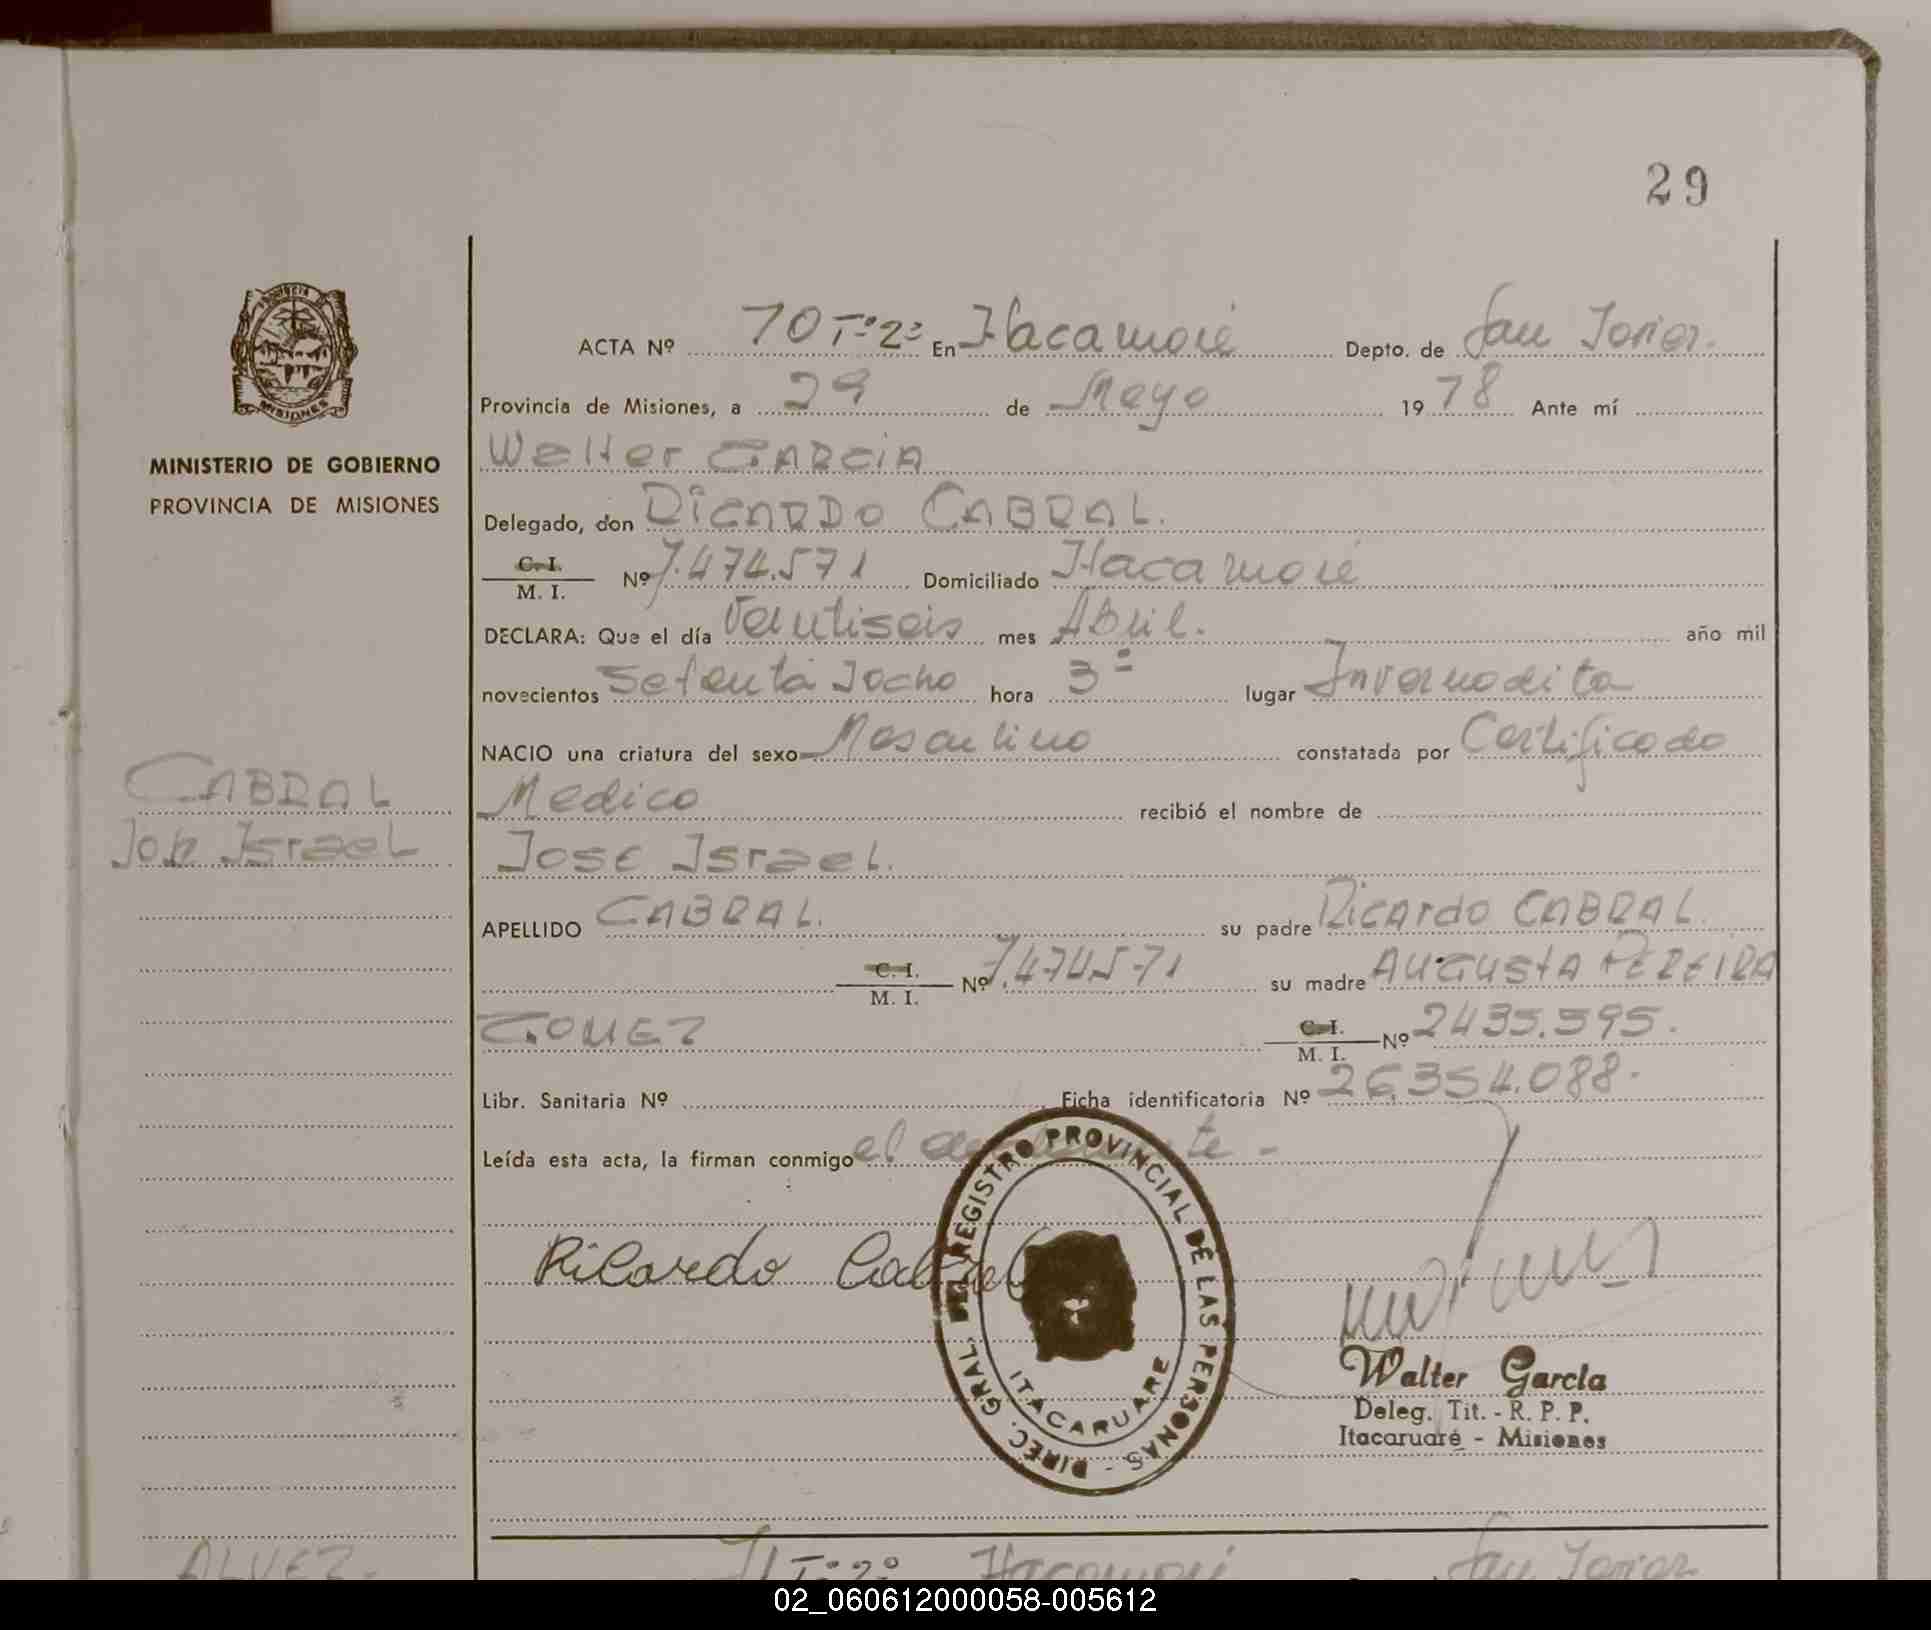 29
MINISTERIO DE GOBIERNO
PROVINCIA DE MISIONES
CABRAL
José Israel
ACTA Nº 70 Tº 2º En Itacaruaré Depto. de San Javier.
Provincia de Misiones, a 29 de Mayo 1978 Ante mí
Walter GARCIA
Delegado, don RICARDO CABRAL.
C. I.
M. I. Nº 7.474.571 Domiciliado Itacaruaré
DECLARA: Que el día Veintiseis mes Abril. año mil
novecientos Setenta Iocho hora 3º lugar Invernadita
NACIO una criatura del sexo Masculino constatada por Certificado
Medico recibió el nombre de
José Israel.
APELLIDO CABRAL. su padre Ricardo CABRAL.
C. I.
M. I. Nº 7.474.571 su madre AUGUSTA PEREIRA
GOMEZ C. I.
M. I. Nº 2435.595.
Libr. Sanitaria Nº Ficha identificatoria Nº 26.354.088.
Leída esta acta, la firman conmigo el declarante -
Ricardo Cabral
DIREC. GRAL. DEL REGISTRO PROVINCIAL DE LAS PERSONAS -
ITACARUARE
Walter García
Deleg. Tit. - R. P. P.
Itacaruaré - Misiones
ALVEZ.
71 Tº 2º Itacaruaré San Javier
02_060612000058-005612